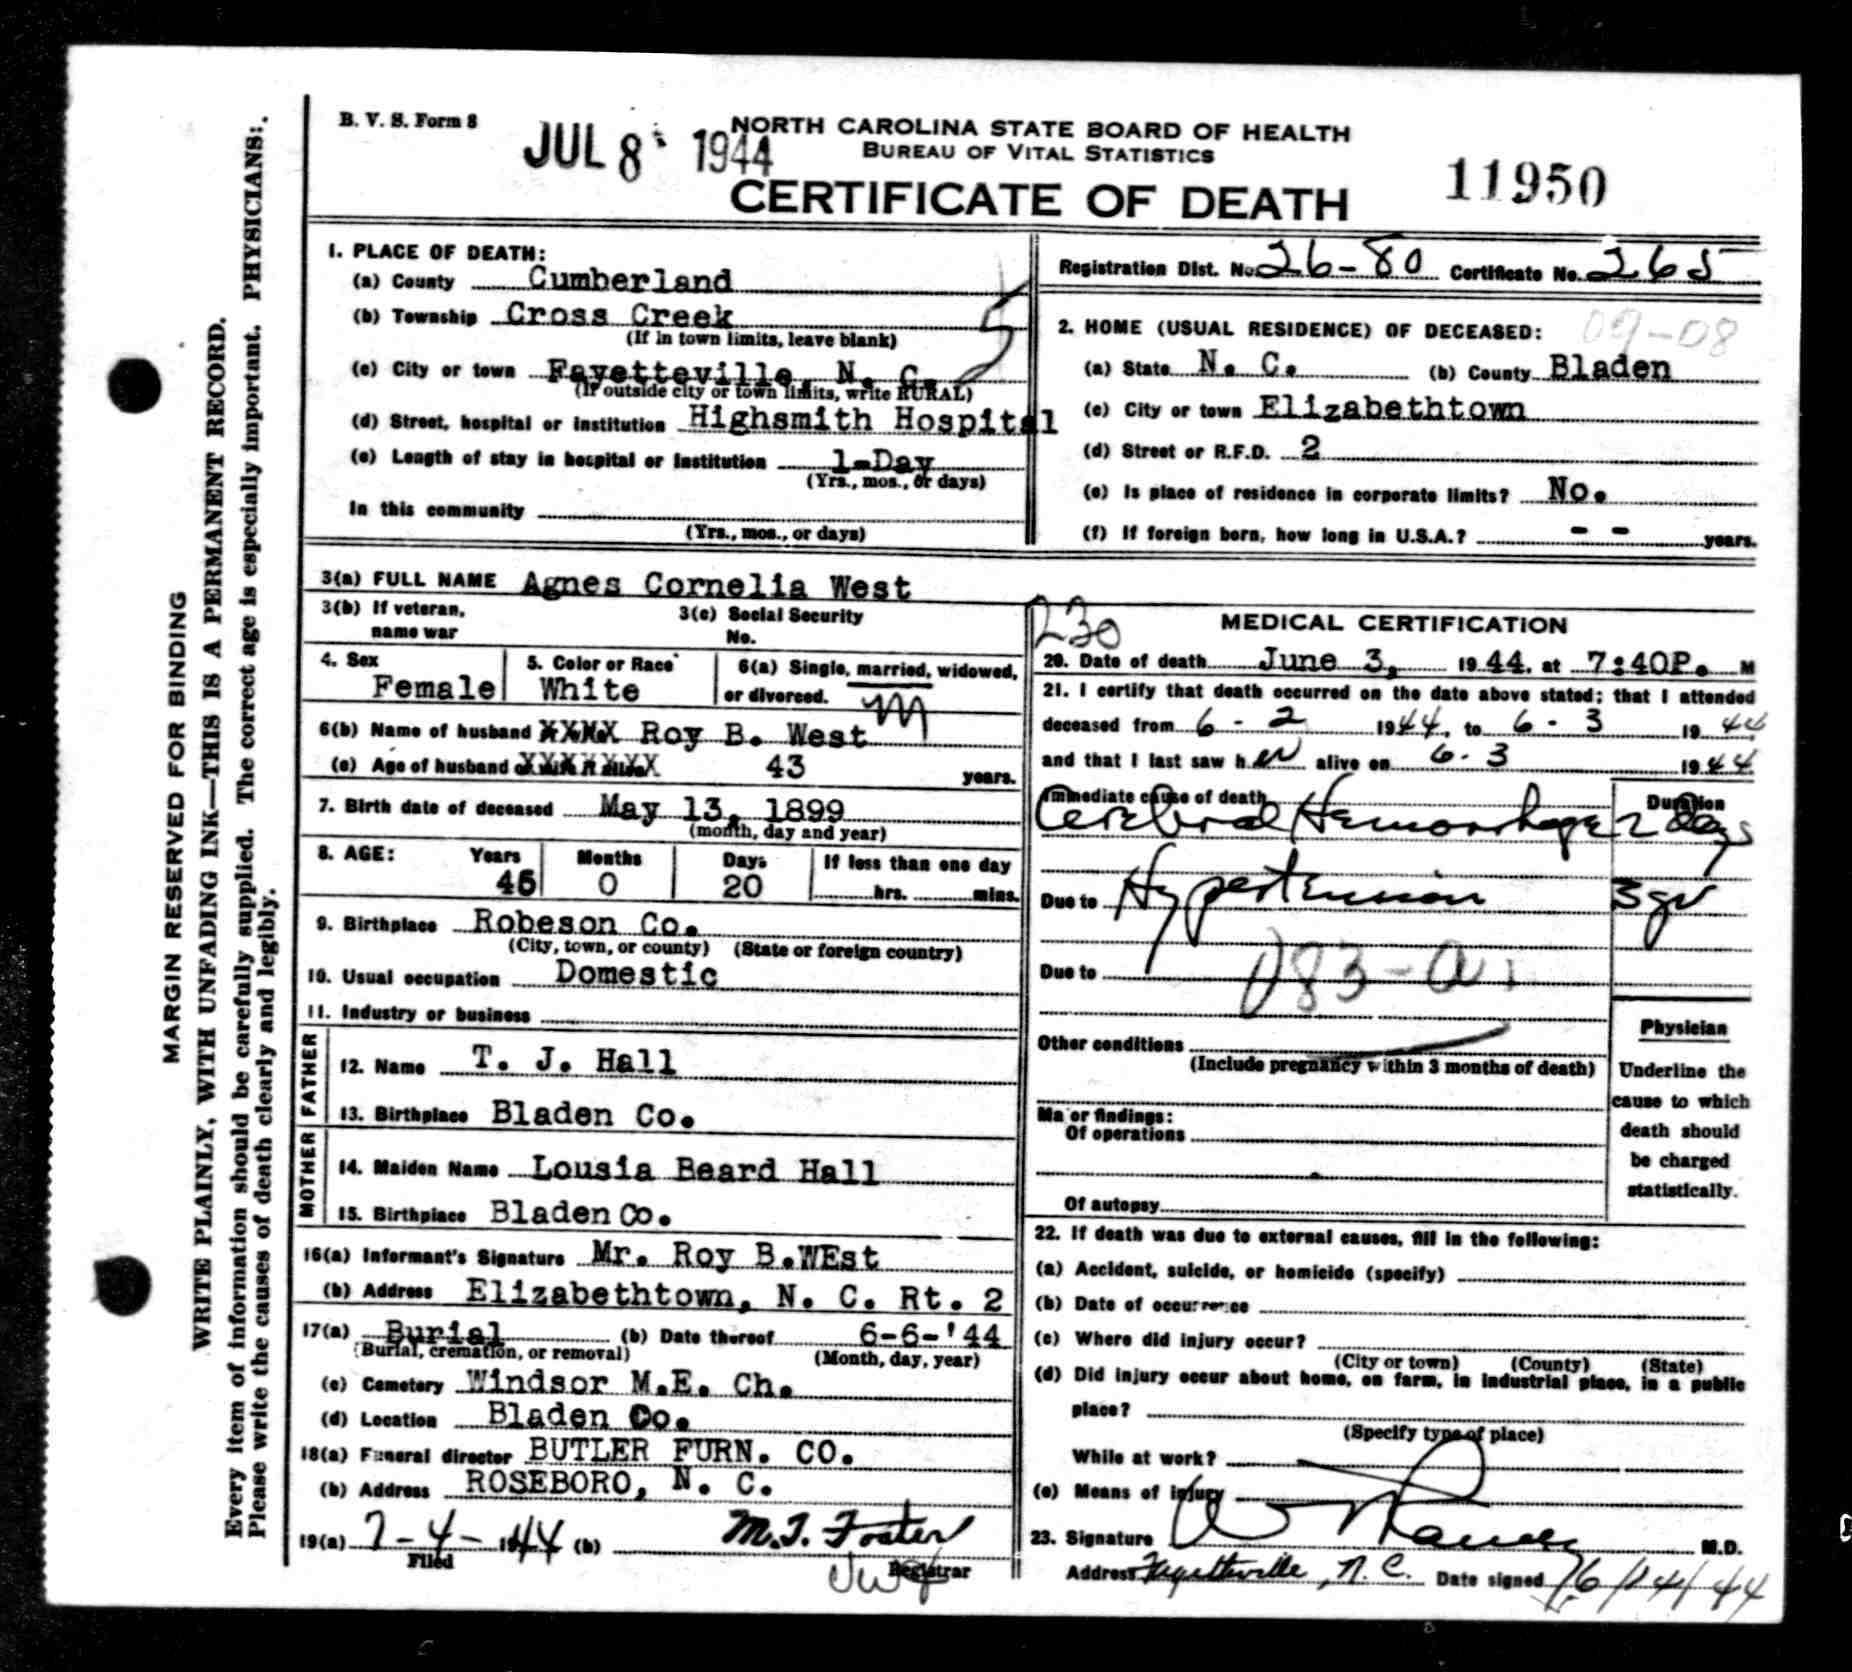 B. V. S. Form 8
JUL 8 1944
NORTH CAROLINA STATE BOARD OF HEALTH
BUREAU OF VITAL STATISTICS
CERTIFICATE OF DEATH
11950
MARGIN RESERVED FOR BINDING
WRITE PLAINLY, WITH UNFADING INK—THIS IS A PERMANENT RECORD.
Every item of information should be carefully supplied. The correct age is especially important. PHYSICIANS:
Please write the causes of death clearly and legibly.
1. PLACE OF DEATH:
(a) County Cumberland
(b) Township Cross Creek
(If in town limits, leave blank)
5
(c) City or town Fayetteville, N. C.
(If outside city or town limits, write RURAL)
(d) Street, hospital or institution Highsmith Hospital
(e) Length of stay in hospital or institution 1-Day
(Yrs., mos., or days)
In this community
(Yrs., mos., or days)
Registration Dist. No. 26-80 Certificate No. 265
2. HOME (USUAL RESIDENCE) OF DECEASED: 09-08
(a) State N. C. (b) County Bladen
(c) City or town Elizabethtown
(d) Street or R.F.D. 2
(e) Is place of residence in corporate limits? No.
(f) If foreign born, how long in U.S.A.? - - years.
3(a) FULL NAME Agnes Cornelia West
3(b) If veteran, name war
3(c) Social Security No.
4. Sex Female
5. Color or Race White
6(a) Single, married, widowed, or divorced. M
6(b) Name of husband XXXX Roy B. West
(c) Age of husband or wife if alive XXXXXXX 43 years.
7. Birth date of deceased May 13, 1899
(month, day and year)
8. AGE: Years Months Days If less than one day
45 0 20 hrs. mins.
9. Birthplace Robeson Co.
(City, town, or county) (State or foreign country)
10. Usual occupation Domestic
11. Industry or business
FATHER
12. Name T. J. Hall
13. Birthplace Bladen Co.
MOTHER
14. Maiden Name Lousia Beard Hall
15. Birthplace Bladen Co.
16(a) Informant's Signature Mr. Roy B.WEst
(b) Address Elizabethtown, N. C. Rt. 2
17(a) Burial (b) Date thereof 6-6-'44
(Burial, cremation, or removal) (Month, day, year)
(c) Cemetery Windsor M.E. Ch.
(d) Location Bladen Co.
18(a) Funeral director BUTLER FURN. CO.
(b) Address ROSEBORO, N. C.
19(a) 7-4-1944 (b) M.T. Foster
Filed Registrar
230
MEDICAL CERTIFICATION
20. Date of death June 3, 1944. at 7:40P. M
21. I certify that death occurred on the date above stated; that I attended
deceased from 6-2 1944, to 6-3 1944
and that I last saw her alive on 6-3 1944
Immediate cause of death Duration
Cerebral Hemorrhage 2 days
Due to Hypertension 3 yr
Due to 083-a
Other conditions
(Include pregnancy within 3 months of death)
Major findings:
Of operations
Of autopsy
Physician
Underline the
cause to which
death should
be charged
statistically.
22. If death was due to external causes, fill in the following:
(a) Accident, suicide, or homicide (specify)
(b) Date of occurrence
(c) Where did injury occur?
(City or town) (County) (State)
(d) Did injury occur about home, on farm, in industrial place, in a public
place?
(Specify type of place)
While at work?
(e) Means of injury
23. Signature M.D.
Address Fayetteville, N. C. Date signed 6/14/44